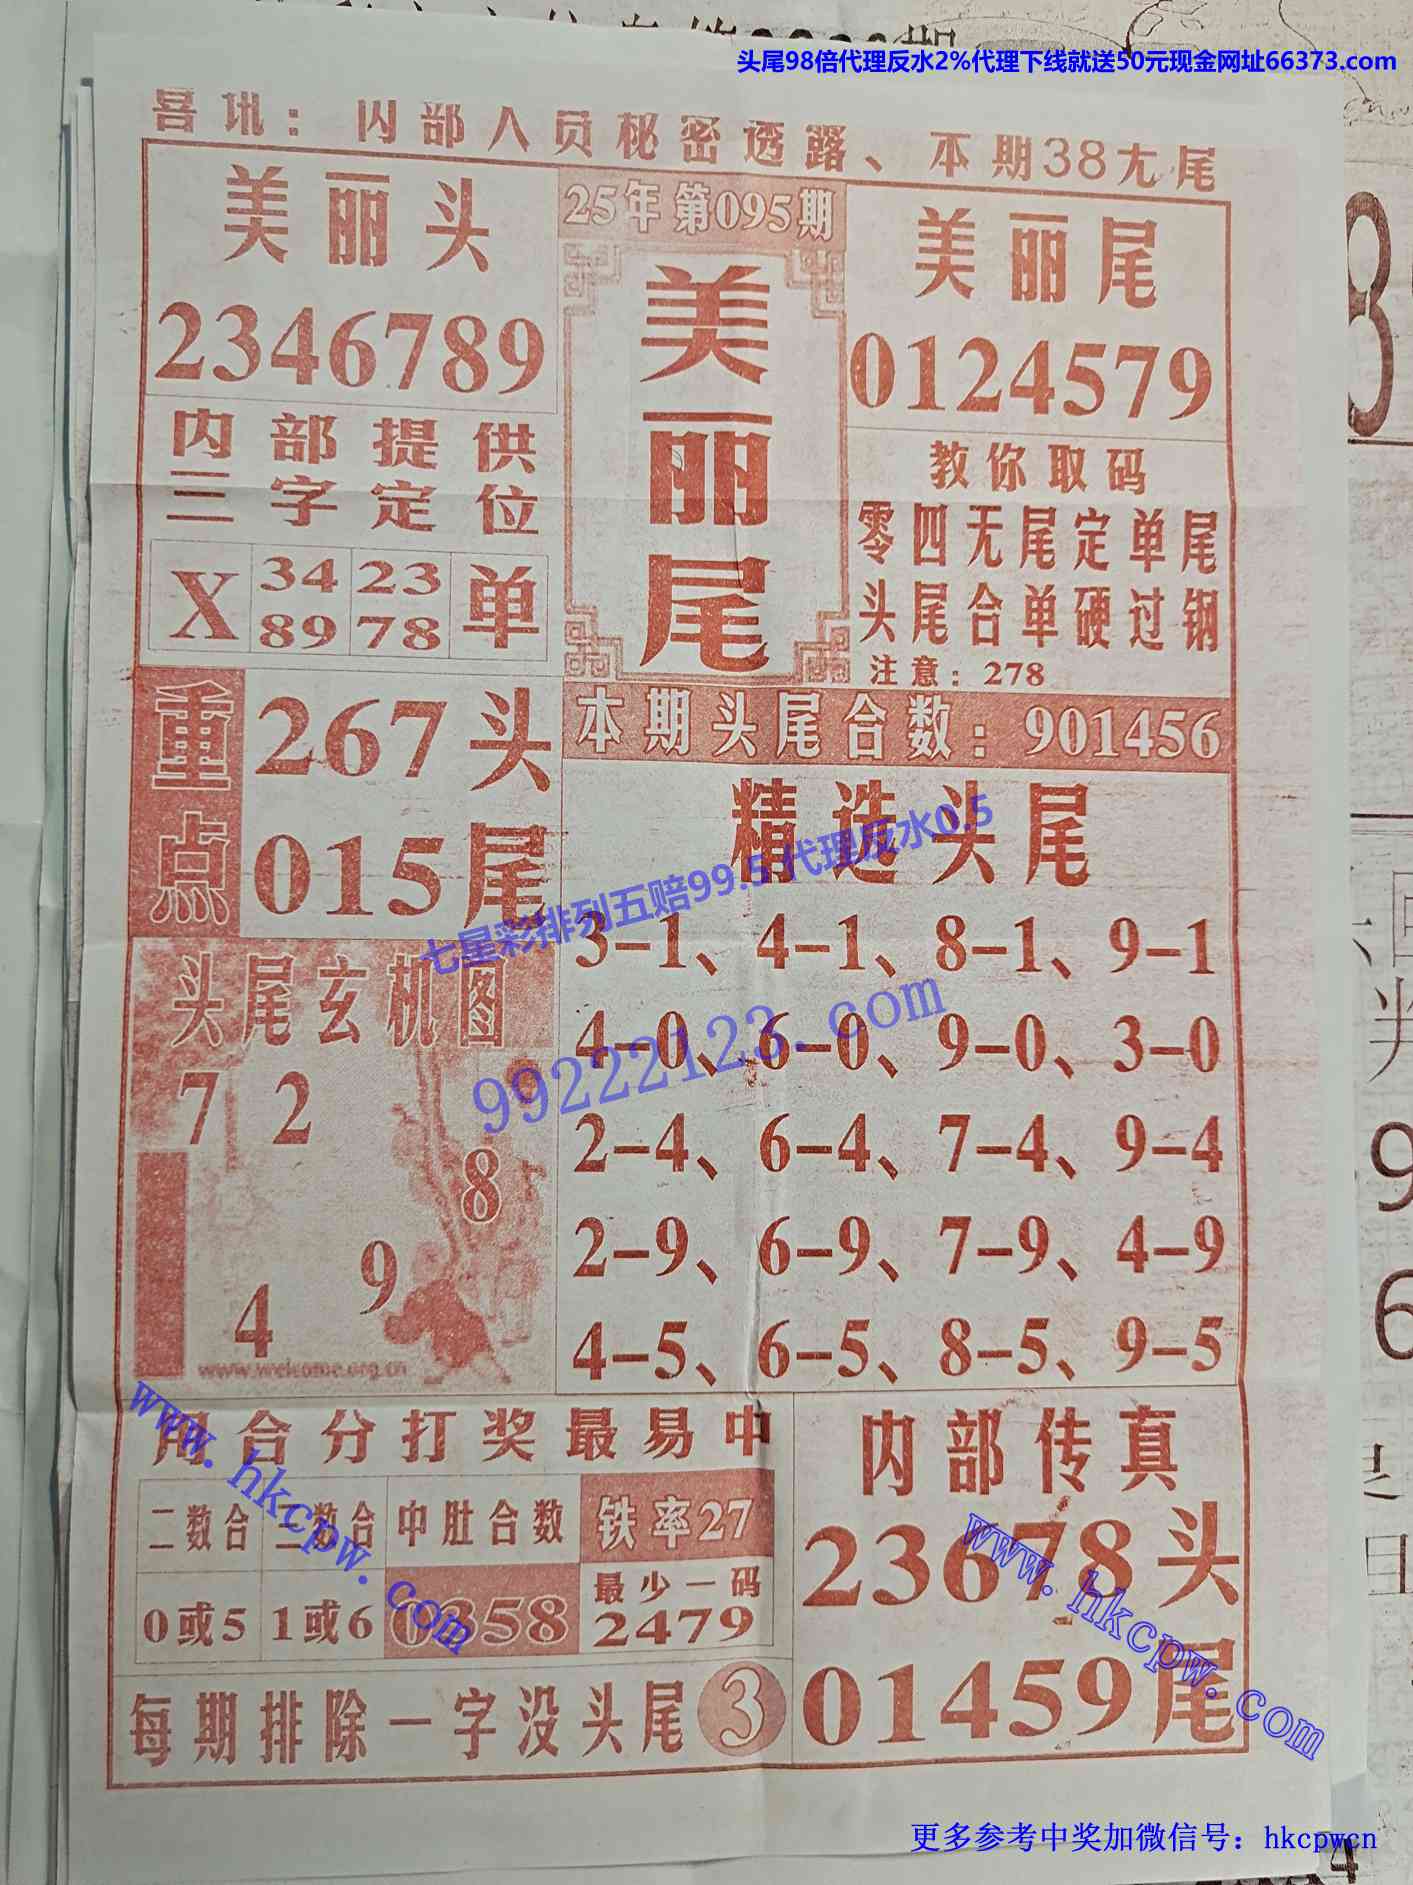 头尾98倍代理反水2%代理下线就送50元现金网址66373.com
喜讯：内部人员秘密透露、本期38无尾
美丽头
2346789
25年第095期
美丽尾
美丽尾
0124579
内部提供
三字定位
X 34 23 单
89 78
教你取码
零四无尾定单尾
头尾合单硬过钢
注意：278
重点
267头
015尾
本期头尾合数：901456
精选头尾
3-1、4-1、8-1、9-1
4-0、6-0、9-0、3-0
2-4、6-4、7-4、9-4
2-9、6-9、7-9、4-9
4-5、6-5、8-5、9-5
七星彩排列五赔99.5 代理反水0.5
99222123.com
头尾玄机图
7 2
8
9
4
www.welcome.org.cn
用合分打奖最易中
二数合 三数合 中肚合数 铁率27
0或5 1或6 0358 最少一码
2479
每期排除一字没头尾 3
内部传真
23678头
01459尾
www.hkcpw.com
www.hkcpw.com
更多参考中奖加微信号：hkcpwcn